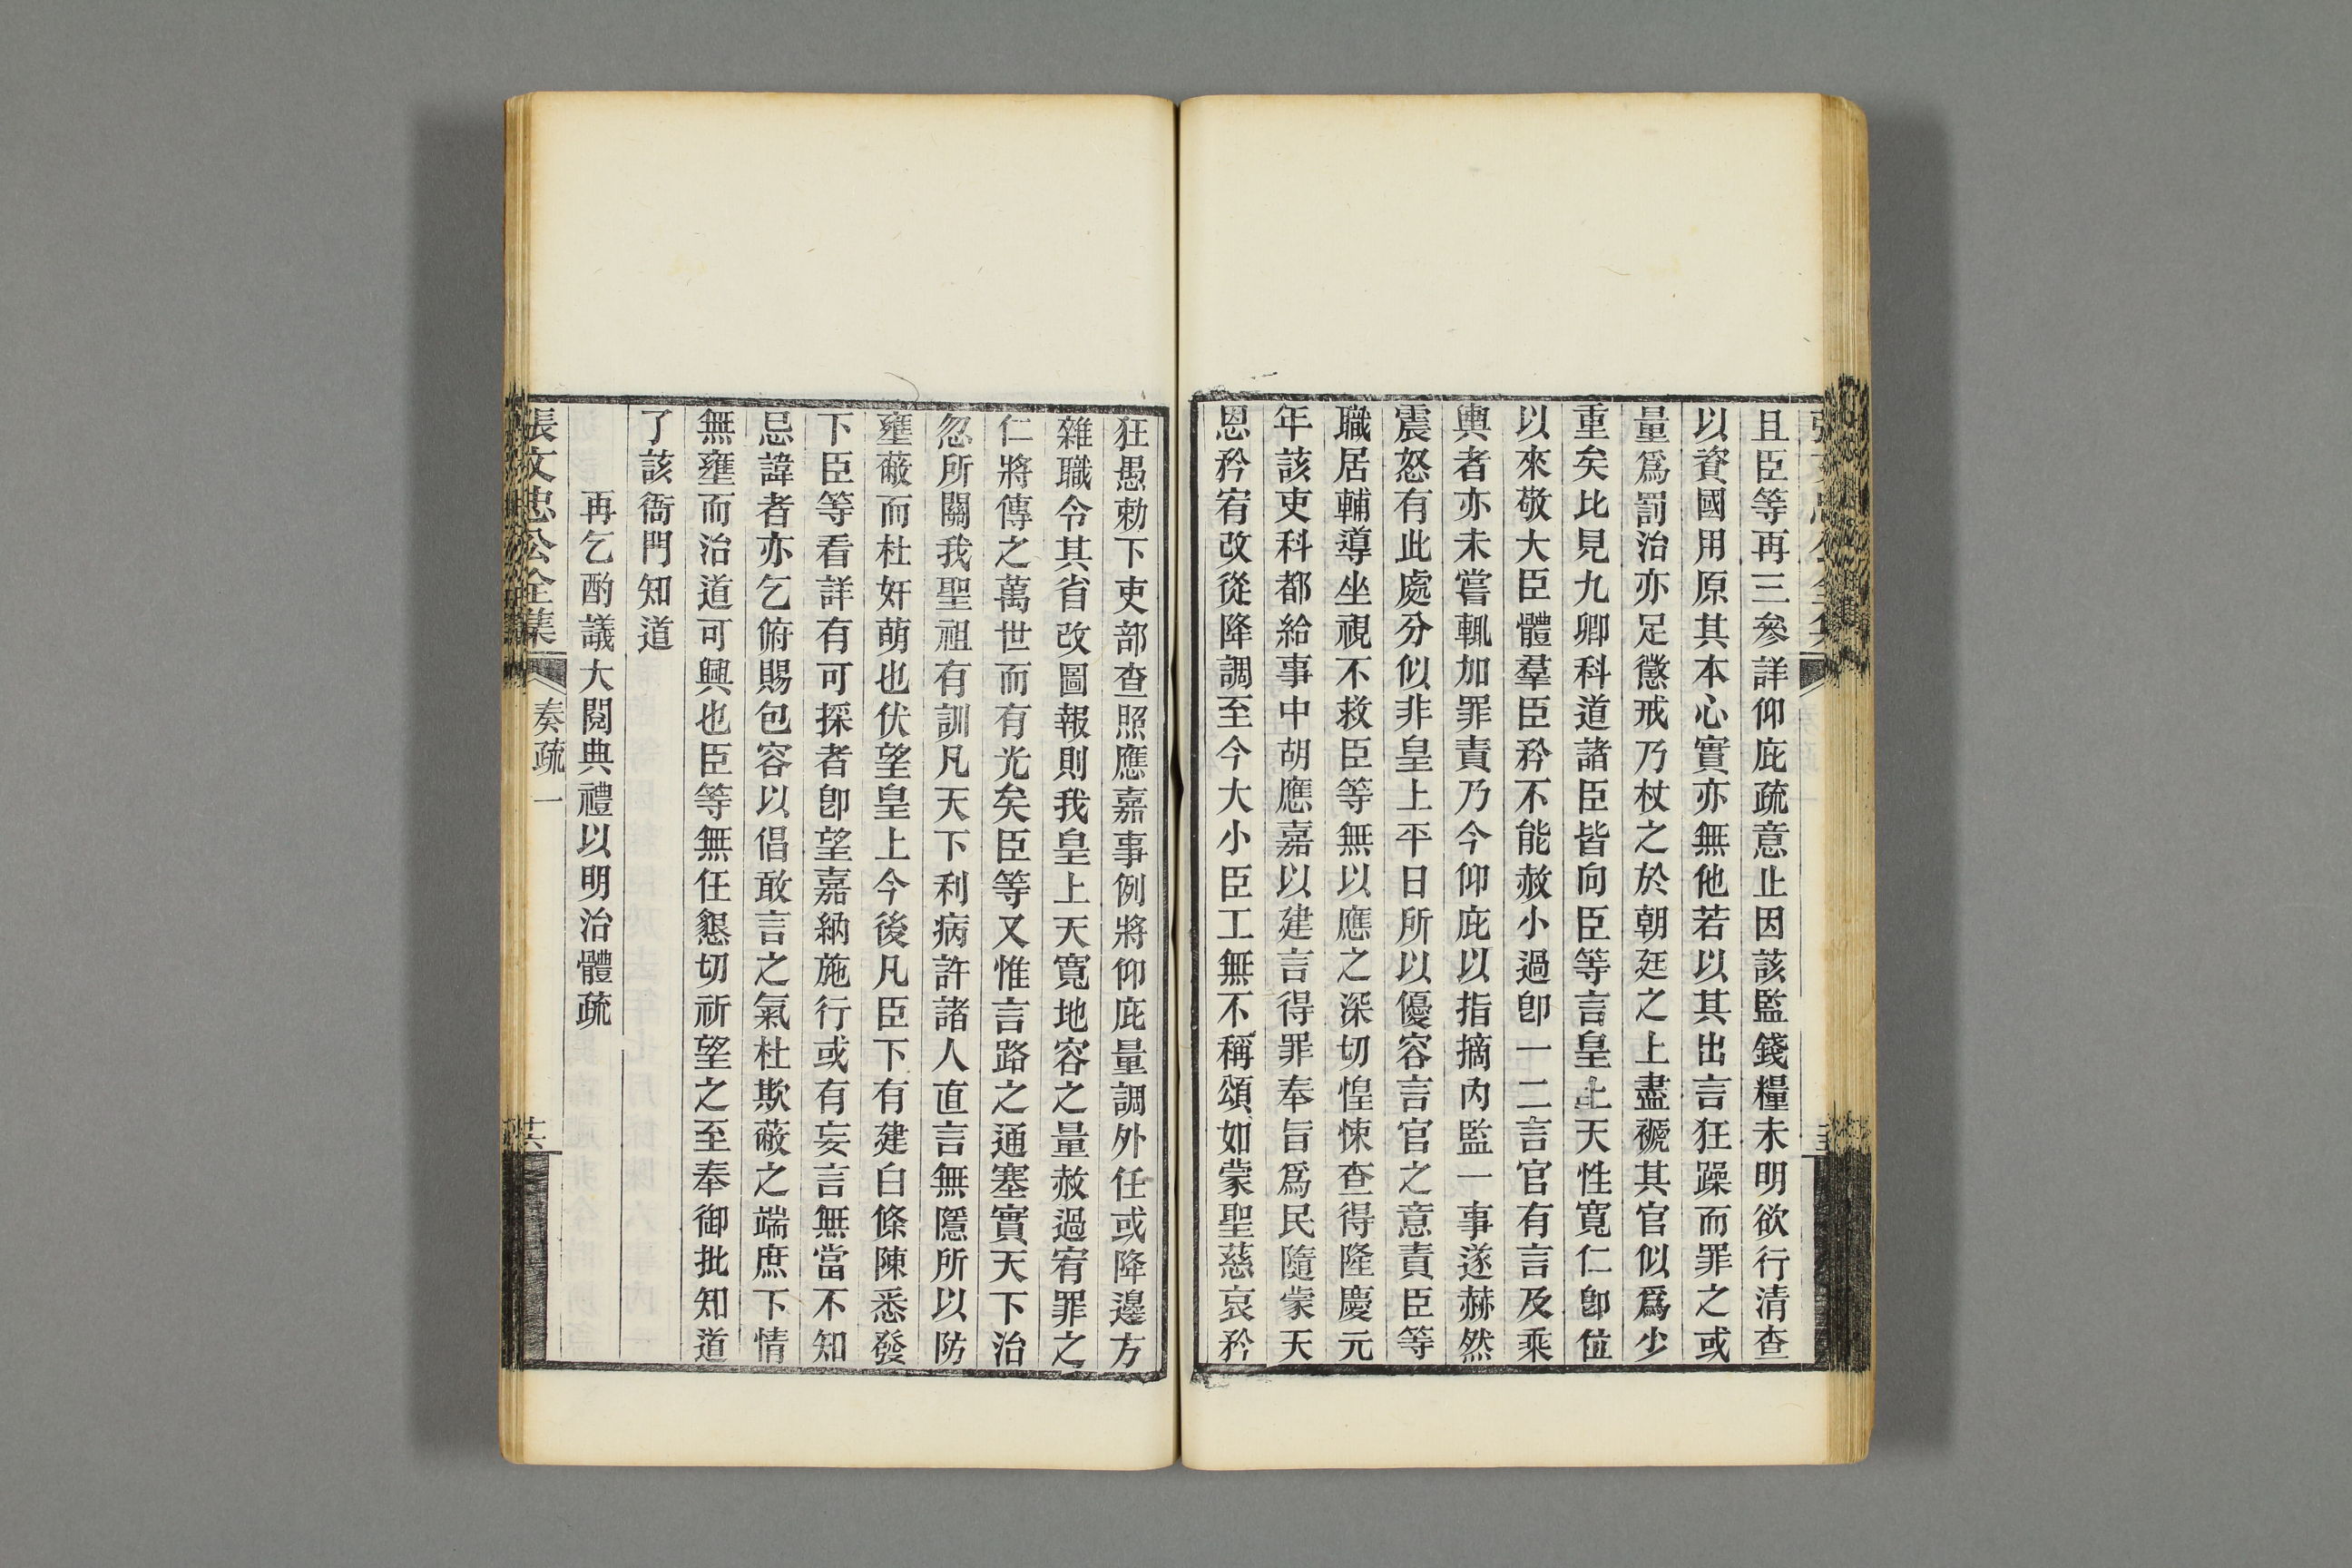 且臣等再三參詳仰庇疏意止因該監錢糧未明欲行清查
以資國用原其本心實亦無他若以其出言狂躁而罪之或
量爲罰治亦足懲戒乃杖之於朝廷之上盡褫其官似爲少
重矣比見九卿科道諸臣皆向臣等言皇上天性寬仁卽位
以來敬大臣體羣臣矜不能赦小過卽一二言官有言及乘
輿者亦未嘗輒加罪責乃今仰庇以指摘內監一事遂赫然
震怒有此處分似非皇上平日所以優容言官之意責臣等
職居輔導坐視不救臣等無以應之深切惶悚查得隆慶元
年該吏科都給事中胡應嘉以建言得罪奉旨爲民隨蒙天
恩矜宥改從降調至今大小臣工無不稱頌如蒙聖慈哀矜
狂愚勅下吏部查照應嘉事例將仰庇量調外任或降邊方
雜職令其省改圖報則我皇上天寬地容之量赦過宥罪之
仁將傳之萬世而有光矣臣等又惟言路之通塞實天下治
忽所關我聖祖有訓凡天下利病許諸人直言無隱所以防
壅蔽而杜奸萌也伏望皇上今後凡臣下有建白條陳悉發
下臣等看詳有可採者卽望嘉納施行或有妄言無當不知
忌諱者亦乞俯賜包容以倡敢言之氣杜欺蔽之端庶下情
無壅而治道可興也臣等無任懇切祈望之至奉御批知道
了該衙門知道
再乞酌議大閱典禮以明治體疏
張文忠公全集
奏疏一
十六